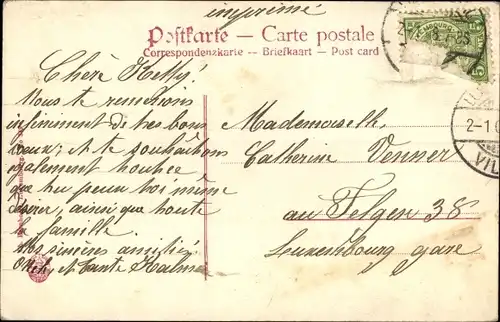 imprimé
Postkarte – Carte postale
Correspondenzkarte – Briefkaart – Post card
Chère Ketty!
Nous te remercions
infiniment de tes bons
voeux, et te souhaitons
également toutce
que tu peux toi même
désirer, ainsi que toute
ta famille.
Nos sincères amitiés
et Tante
Mademoiselle
Catherine Venner
au Felgen 38
Luxembourg gare
5
2-1
VIL